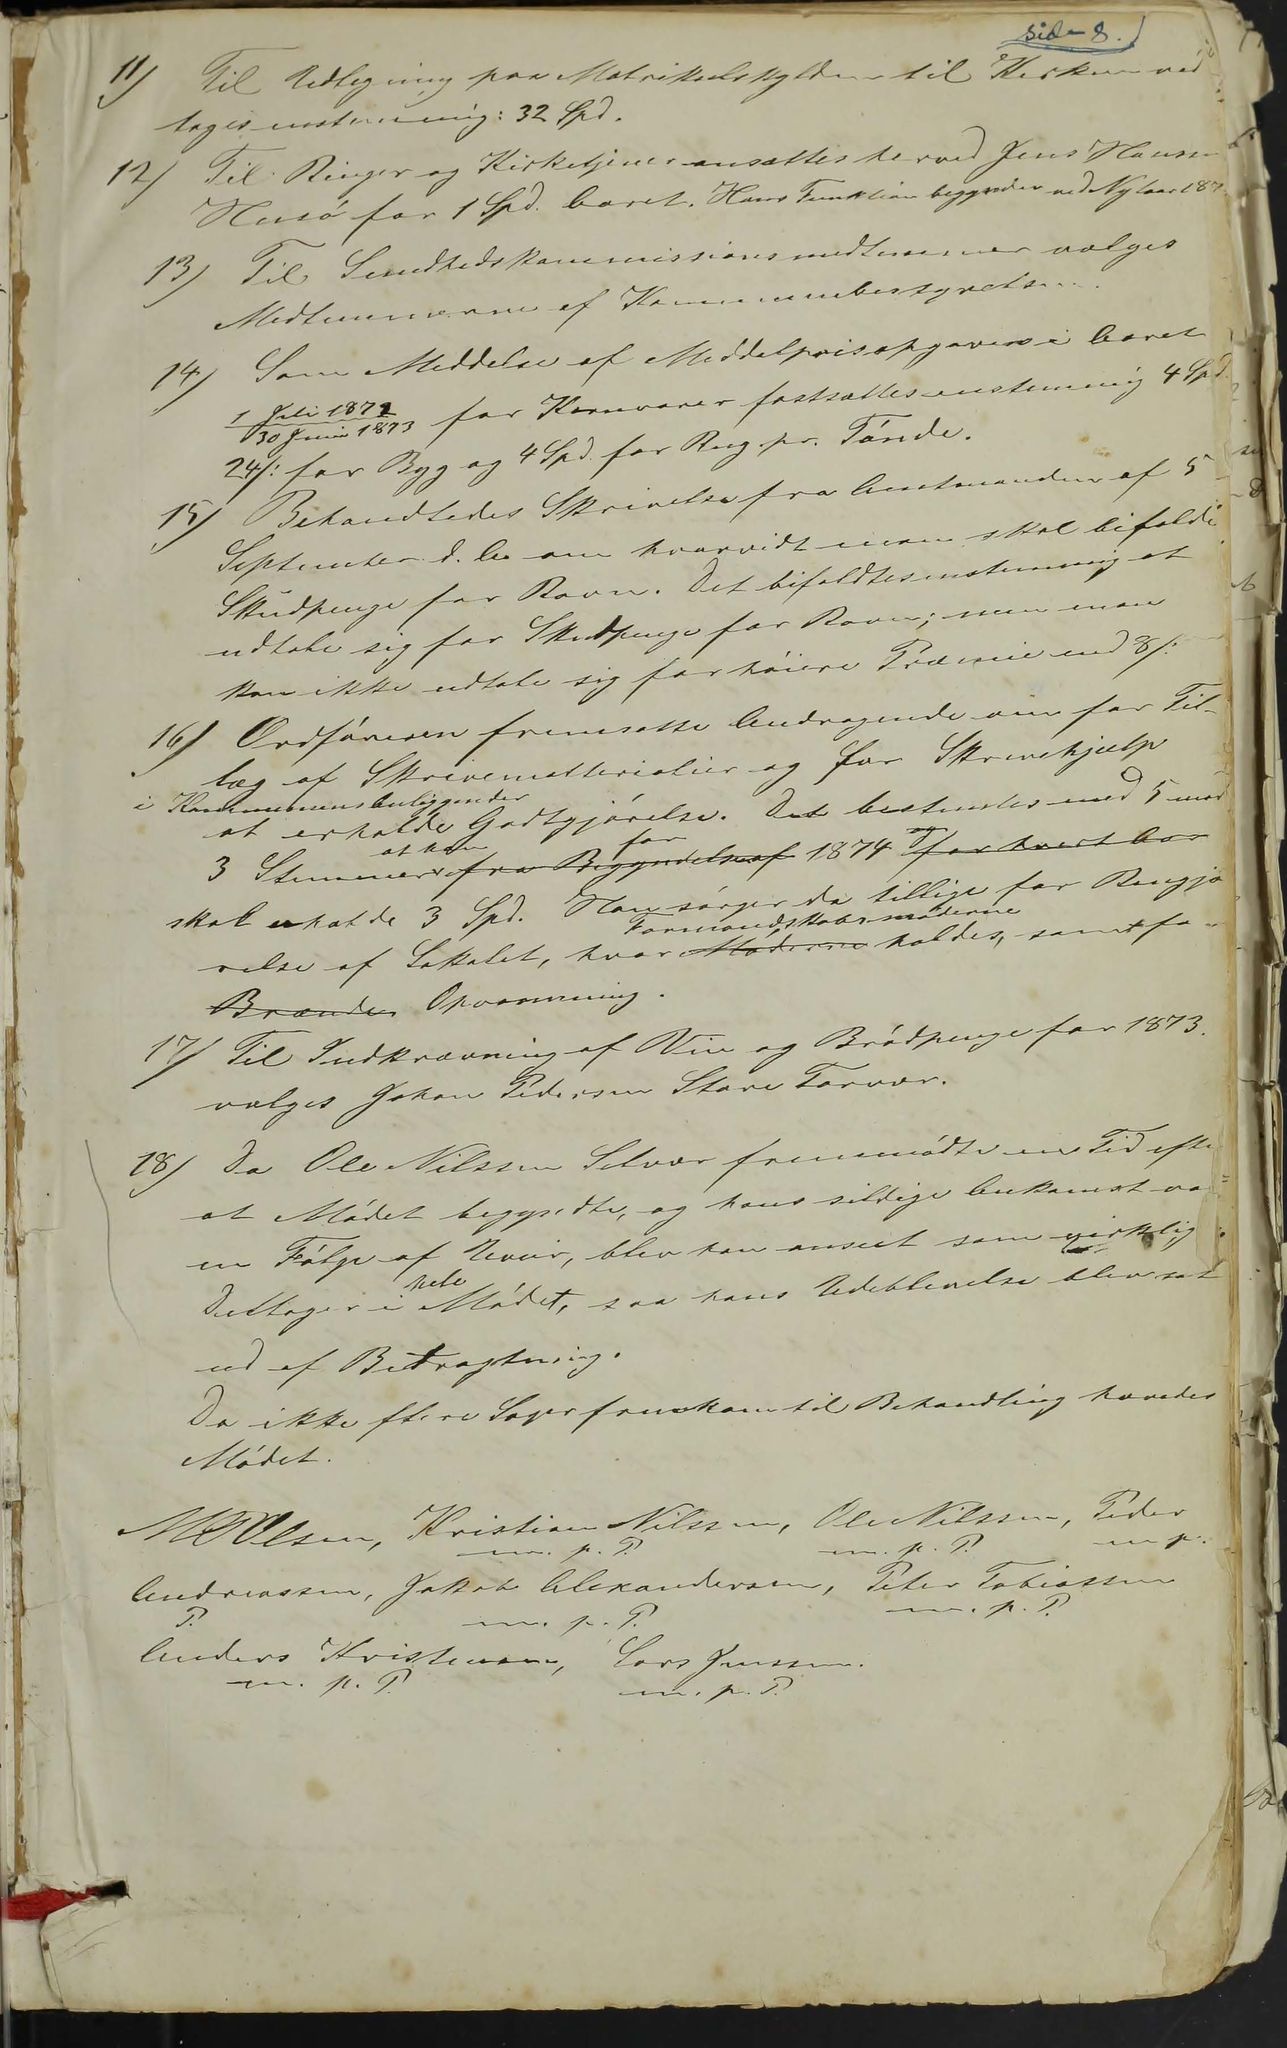 side 8.
11/ Til Udligning paa Matrikelskylden til Kirken ved
tages enstemmig: 32 Spd.
12/ Til Ringer og Kirketjener ansættes herved Jens Hansen
Husø for 1 Spd. Aaret. Hans Funktion begynder ved Nytaar 187
13/ Til Sundhedskommissionsmedlemmer valges
Medlemmerne af Kommunebestyrelsen.
14/ Som Meddelse af Middelprisopgaven i Aaret
1 Juli 1872
30 Juni 1873 for Kornvarer fastsættes enstemmig 4 Spd.
24/: for Byg og 4 Spd. for Rug pr. Tønde.
15/ Behandledes Skrivelse fra Amtmanden af 5
September d. A. om hvorvidt man skal bifalde
Skudpenge for Ravn. Det bifaldtes enstemmig at
udtale sig for Skudpenge for Ravn; men man
kan ikke udtale sig for høiere Præmie end 8/:
16/ Ordføreren fremsatte Andragende om for Til-
læg af Skrivematterialier og for Skrivehjælp
i Kommunens Anliggender
at erholde Godtgjørelse. Det bestemtes med 5 mod
3 Stemmer at han fra Begyndelse af for 1874 og for hvert Aar
skal erholde 3 Spd. Han sørger da tillige for Rengjø
relse af Lokalet, hvor Møderne Formandskabsmøderne holdes, samt for
Brænde Opvarmning.
17/ Til Indkrævning af Vin og Brødpenge for 1873.
valges Johan Pedersen Store Torvær.
18/ Da Ole Nilssen Selvær fremmødte en Tid efte
at Mødet begyndte, og hans sildige Ankomst va
en Følge af Uveir, blev han anseet som virkelig
Deltager i hele Mødet, saa hans Udeblivelse blev sat
ud af Betragtning.
Da ikke flere Sager fremkom til Behandling hævedes
Mødet.
Olsen, Kristian Nilssen, Ole Nilssen, Peder
m. p. P. m. p. P. m p.
Andreassen, Jakob Alexandersen, Peter Tobiassen
P. m. p. P. m. p. P.
Anders Kristensen, Lars Jenssen.
m. p. P. m. p. P.